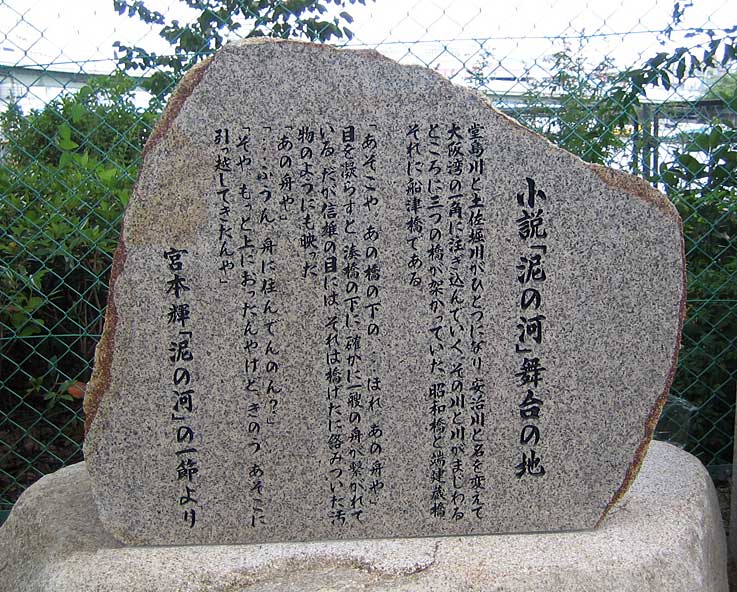 小説「泥の河」舞台の地
堂島川と土佐堀川がひとつになり、安治川と名を変えて
大阪湾の一角に注ぎ込んでいく。その川と川がまじわる
ところに三つの橋が架かっていた。昭和橋と端建蔵橋、
それに船津橋である。
「あそこや、あの橋の下の……ほれ、あの舟や」
目を凝らすと、湊橋の下に、確かに一艘の舟が繋がれて
いる。だが信雄の目には、それは橋げたに絡みついた汚
物のようにも映った。
「あの舟や」
「……ふうん、舟に住んでんのん？」
「そや、もっと上におったんやけど、きのうあそこに
引っ越してきたんや」
宮本輝「泥の河」の一節より